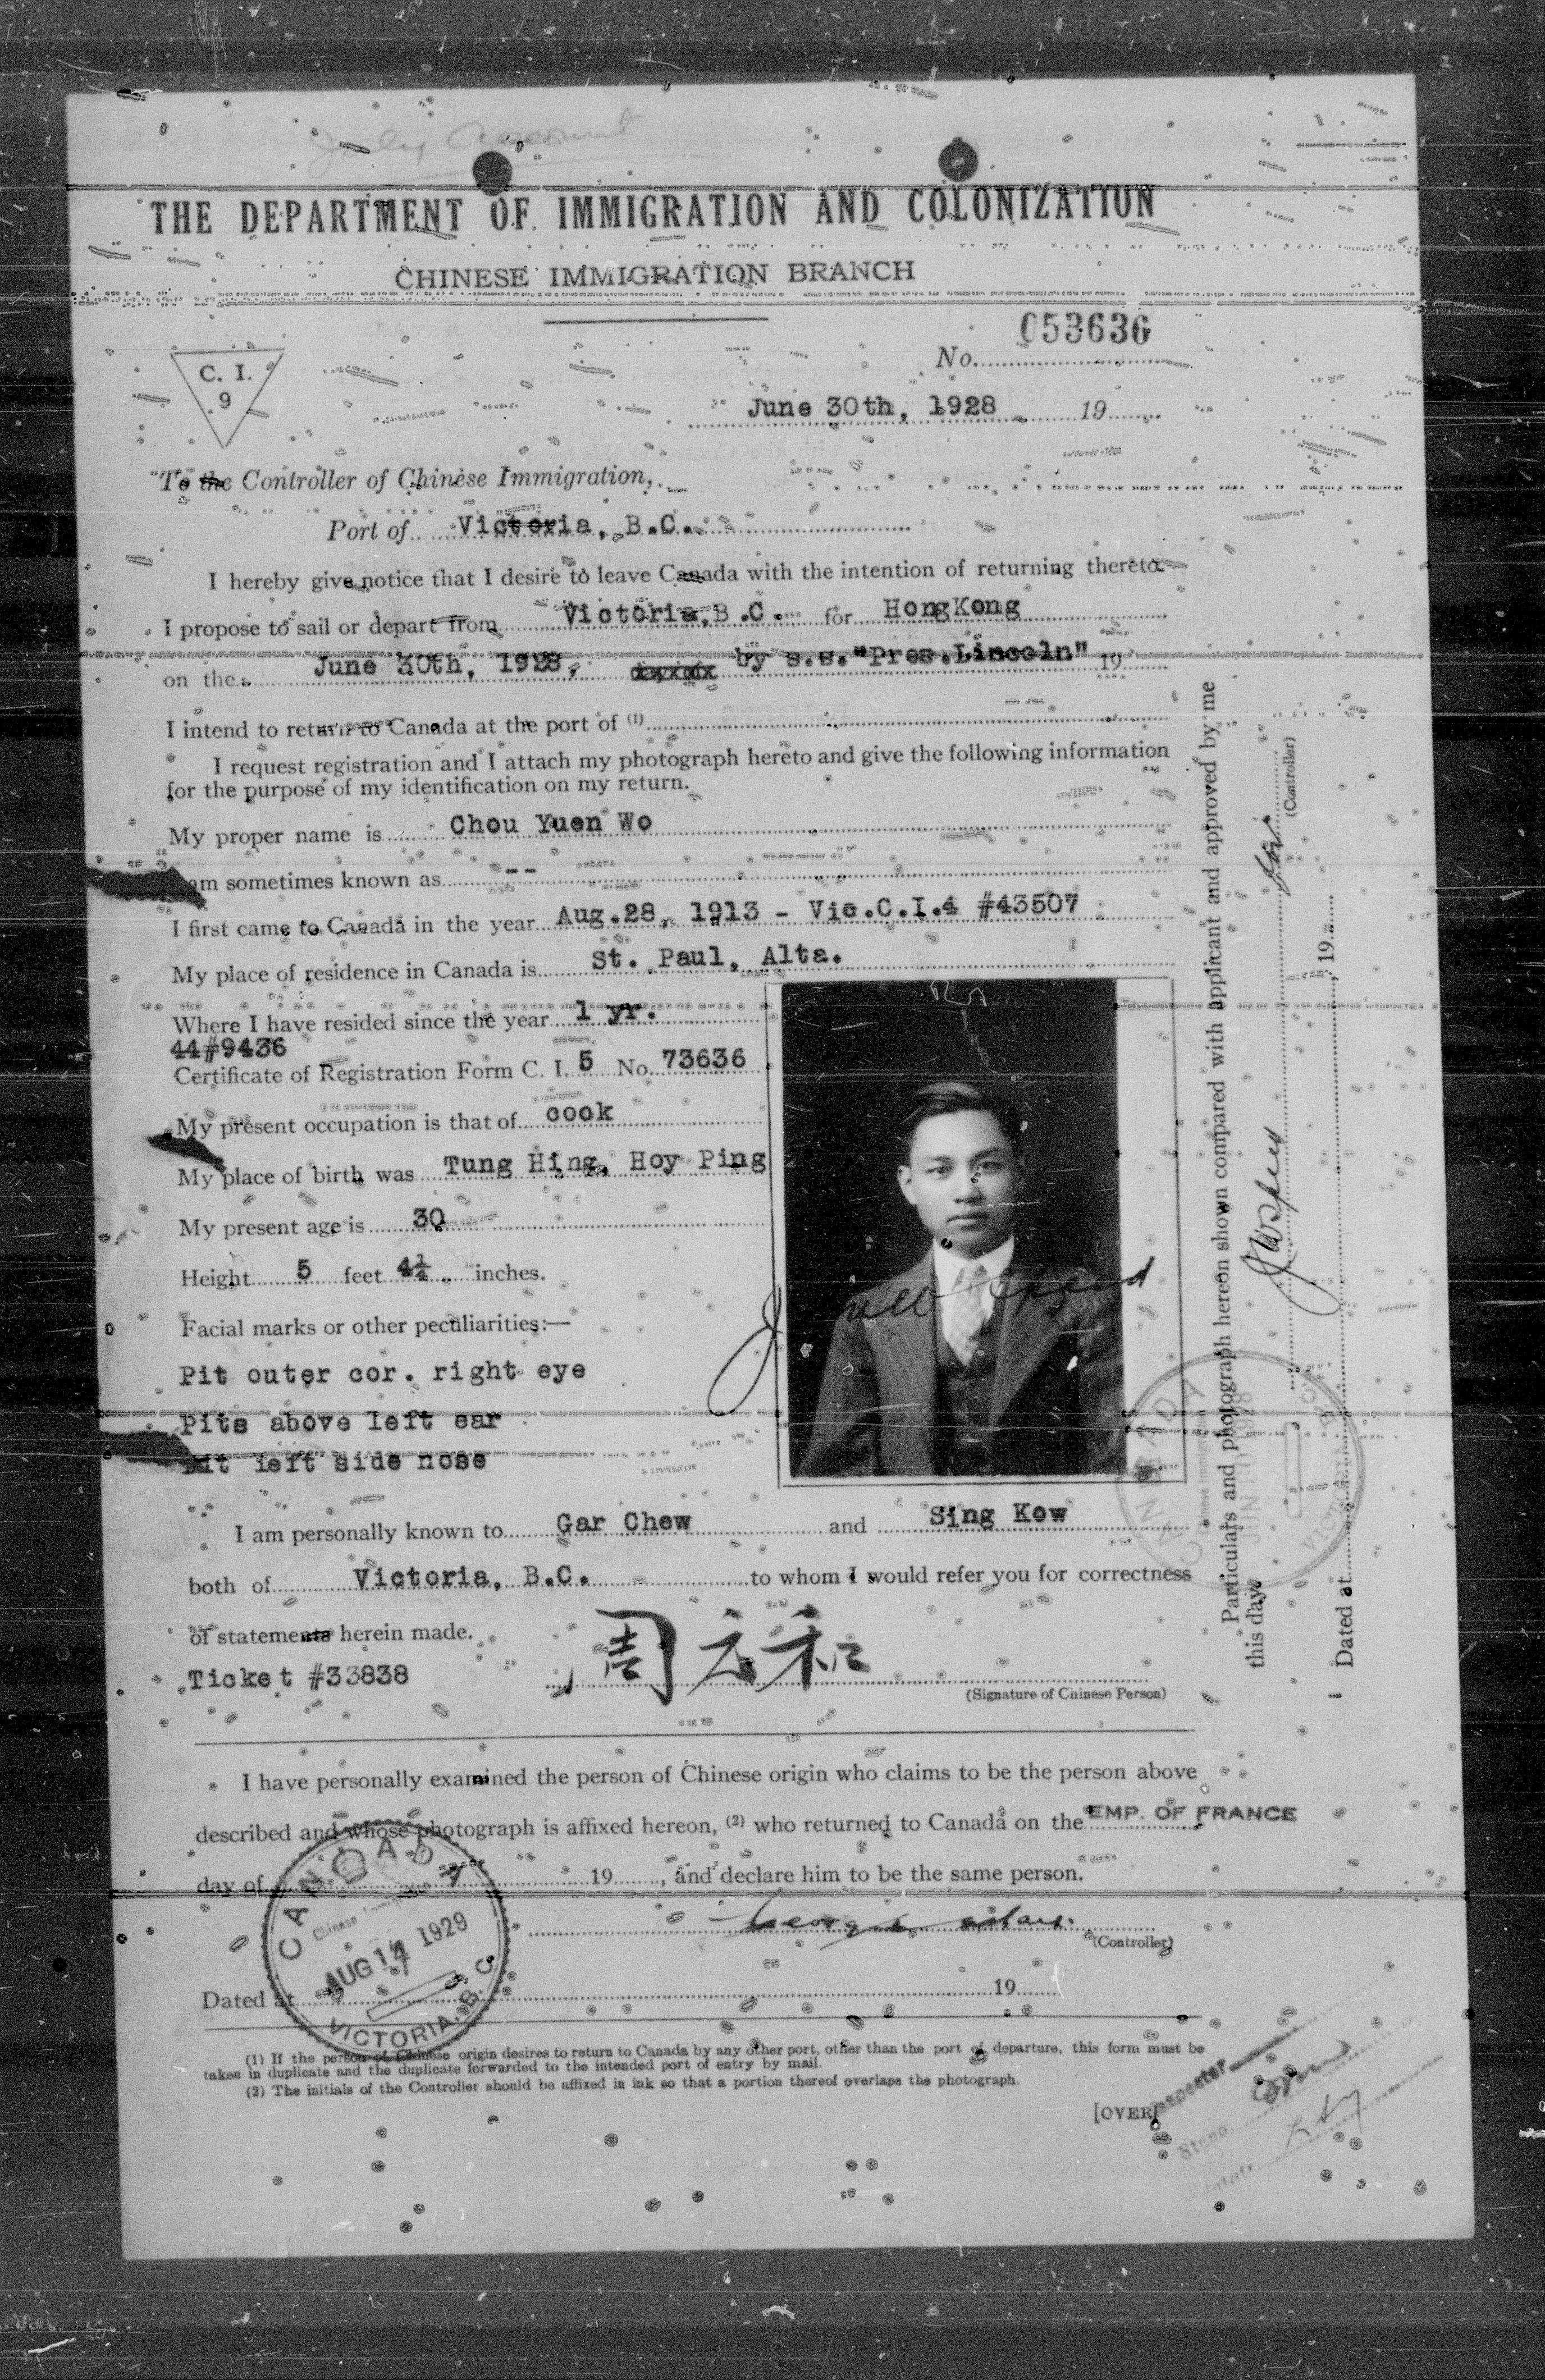 July Account
THE DEPARTMENT OF IMMIGRATION AND COLONIZATION
CHINESE IMMIGRATION BRANCH
C53636
No.
C. I.
9
June 30th, 1928 19
To the Controller of Chinese Immigration,
Port of Victoria, B.C.
I hereby give notice that I desire to leave Canada with the intention of returning thereto.
I propose to sail or depart from Victoria, B.C. for HongKong
on the June 30th, 1928, by s.s. "Pres. Lincoln" 19
I intend to return to Canada at the port of (1)
I request registration and I attach my photograph hereto and give the following information
for the purpose of my identification on my return.
My proper name is Chou Yuen Wo
am sometimes known as --
I first came to Canada in the year Aug.28, 1913 - Vic.C.I.4 #43507
My place of residence in Canada is St. Paul, Alta.
Where I have resided since the year 1 yr.
44#9436
Certificate of Registration Form C. I. 5 No. 73636
My present occupation is that of cook
My place of birth was Tung Hing, Hoy Ping
My present age is 30
Height 5 feet 4¼ inches.
Facial marks or other peculiarities:—
Pit outer cor. right eye
Pits above left ear
Pit left side nose
I am personally known to Gar Chew and Sing Kow
both of Victoria, B.C. to whom I would refer you for correctness
of statements herein made.
Ticket #33838
周云和
(Signature of Chinese Person)
I have personally examined the person of Chinese origin who claims to be the person above
described and whose photograph is affixed hereon, (2) who returned to Canada on the EMP. OF FRANCE
day of 19 , and declare him to be the same person.
(Controller)
CANADA
Chinese Immigration
AUG 14 1929
VICTORIA, B.C.
Dated at 19
(1) If the person of Chinese origin desires to return to Canada by any other port, other than the port of departure, this form must be
taken in duplicate and the duplicate forwarded to the intended port of entry by mail.
(2) The initials of the Controller should be affixed in ink so that a portion thereof overlaps the photograph.
[OVER]
Inspector
Steno.
Particulars and photograph hereon shown compared with applicant and approved by me
this day
(Controller)
Dated at , 19
CANADA
JUN 30 1928
VICTORIA, B.C.